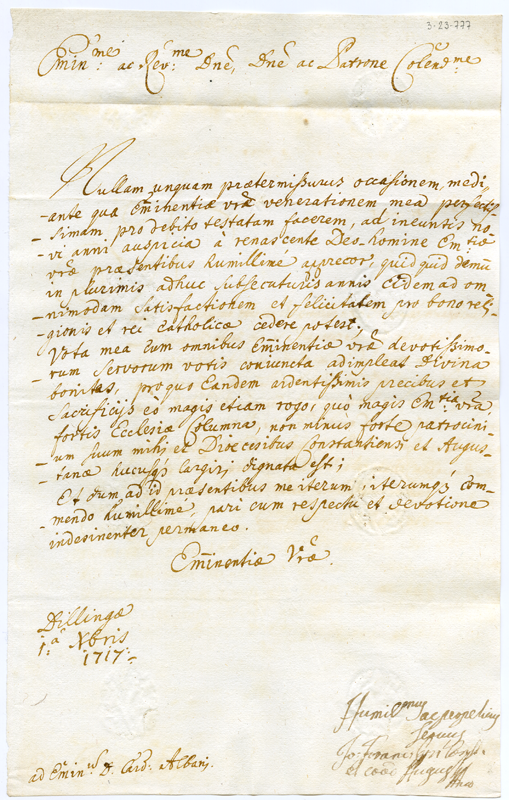 3-23-777
Emin:me ac Rev:me Dnē, Dnē ac Patrone Colend:me
Nullam unquam prætermissurus occasionem, medi-
-ante qua Emīnentiæ vræ venerationem mea perfectis-
-simam pro debito testatam facerem, ad ineuntis no-
-vi anni auspicia à renascente Deo-homine Em:tiæ
vræ præsentibus humillimè apprecor, quidquid demū
in plurimis adhuc subsecuturis annis eidem ad om-
-nimodam satisfactionem et felicitatem pro bono reli-
-gionis et rei catholicæ cedere potest.
Vota mea cum omnibus Eminentiæ vræ devotissimo-
-rum servorum votis coniuncta adimpleat Divina
bonitas, pro quo Eandem ardentissimis precibus et
Sacrificijs eò magis etiam rogo, quò magis Em:tia vrā
fortis Ecclesiæ Columna, non minus forte patrocini-
-um suum mihi et Dioecesibus Constantiensi et Augus-
-tanæ hucusq largiri dignata est;
Et dum ad id præsentibus me iterum iterumq com-
-mendo humillimè, pari cum respectu et devotione
indesinenter permaneo.
Emīnentiæ Vræ
Dillingæ
1.a Xbris
1717.
Humil:mus
Servus
Jo. Franc:
et coad August
ad Emin:m D. Card: Albanj.